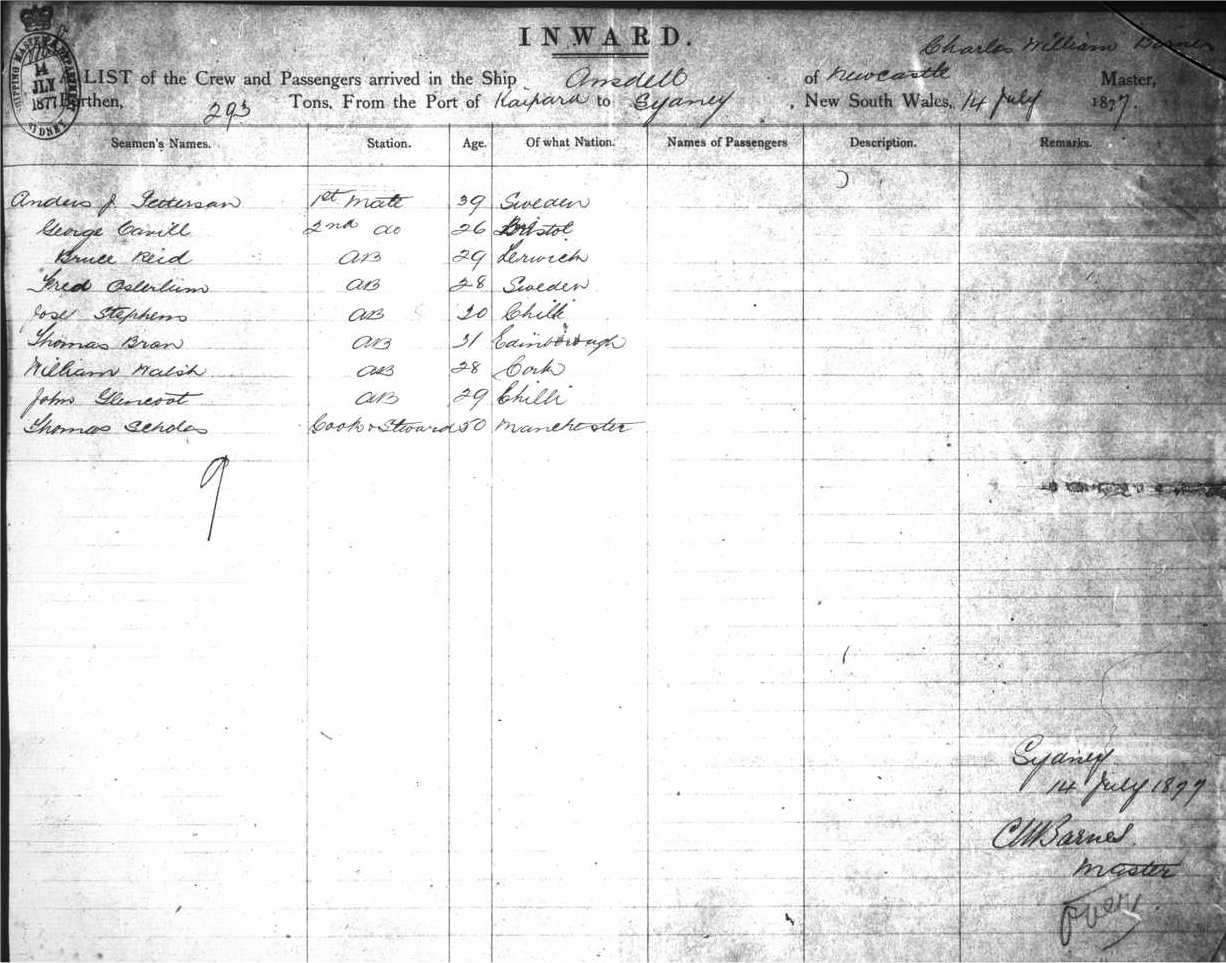 INWARD.
SHIPPING MASTERS DEPARTMENT
14
JLY
1877
SYDNEY
Charles William Barnes
A LIST of the Crew and Passengers arrived in the Ship Ansdell of Newcastle Master,
Burthen, 293 Tons, From the Port of Kaipara to Sydney, New South Wales, 14 July 1877.
Seamen's Names. Station. Age. Of what Nation. Names of Passengers Description. Remarks.
Anders J Petterson 1st Mate 39 Sweden
George Cavill 2nd do 26 Bristol
Bruce Reid AB 29 Lerwick
Fred Osterlum AB 28 Sweden
Jose Stephens AB 30 Chilli
Thomas Bran AB 31 Edinborough
William Walsh AB 28 Cork
John Glencoot AB 29 Chilli
Thomas Scholes Cook & Steward 50 Manchester
9
Sydney
14 July 1877
CW Barnes
Master
Over